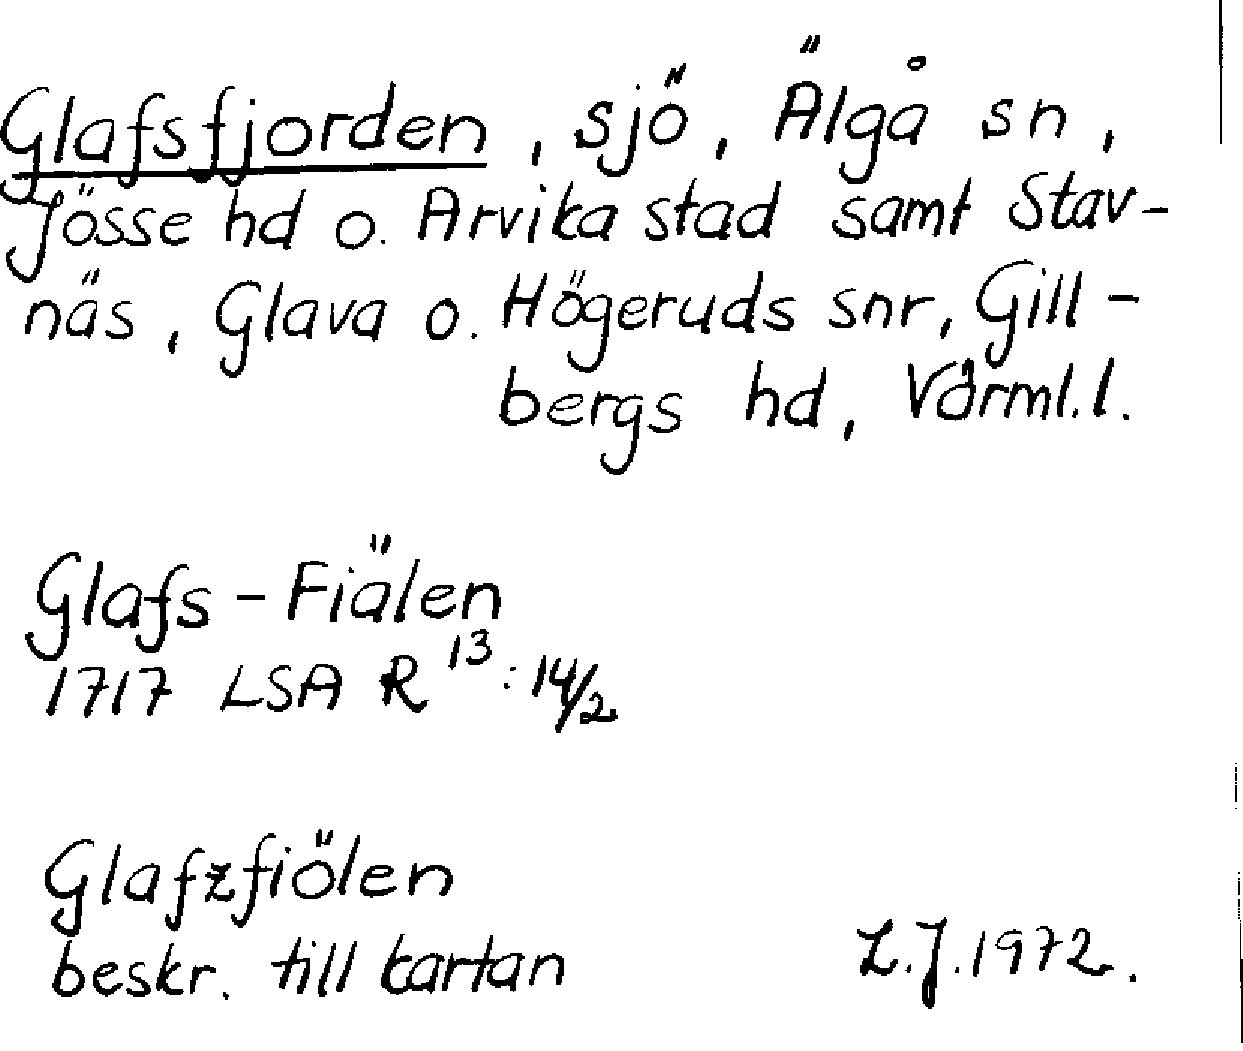 Glafsfjorden, sjö, Älgå sn,
Jösse hd o. Arvika stad samt Stav-
näs, Glava o. Högeruds snr, Gill-
bergs hd, Värml. l.
Glafs-Fiälen
1717 LSA R¹³:14/2
Glafzfiölen
beskr. till kartan
L.J. 1972.